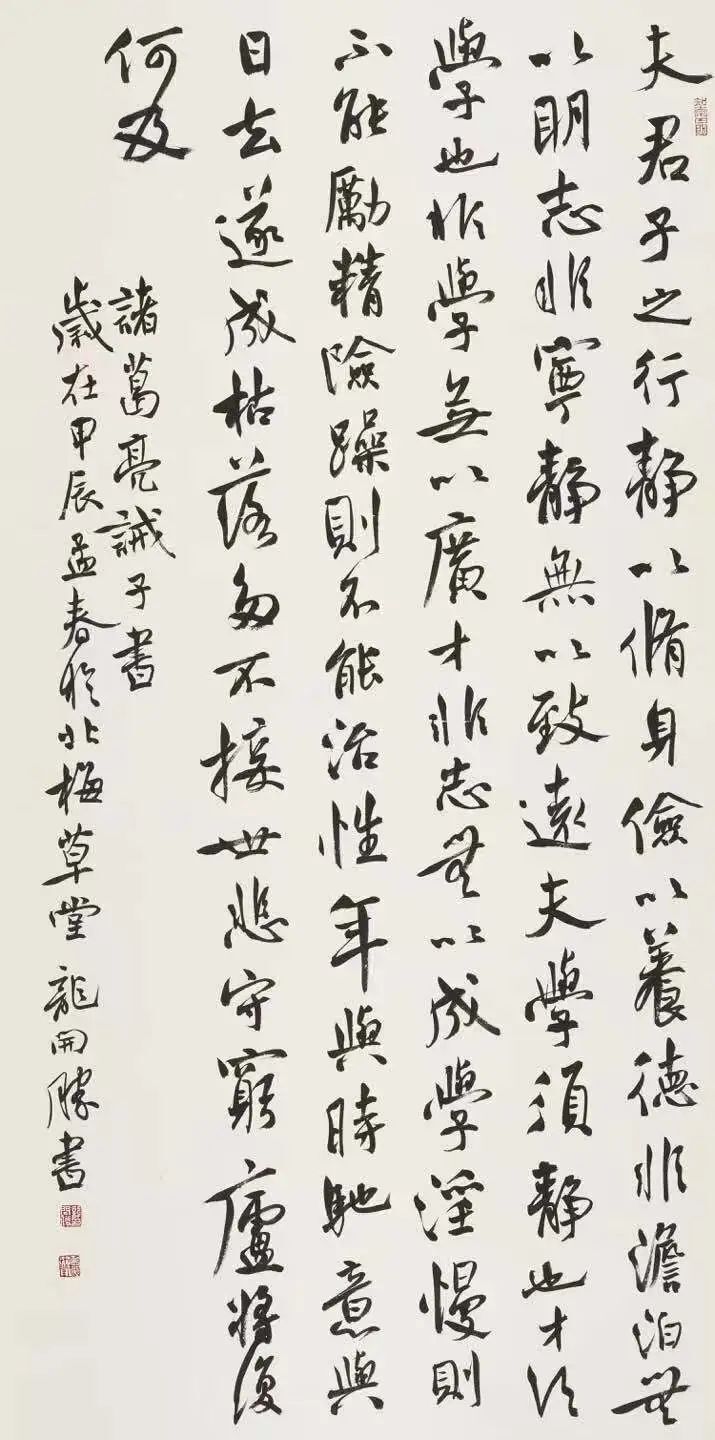 夫君子之行靜以脩身儉以養德非澹泊無
以明志非寧靜無以致遠夫學須靜也才須
學也非學無以廣才非志無以成學淫慢則
不能勵精險躁則不能治性年與時馳意與
日去遂成枯落多不接世悲守窮廬將復
何及
諸葛亮誡子書
歲在甲辰孟春於北梅草堂龍開勝書